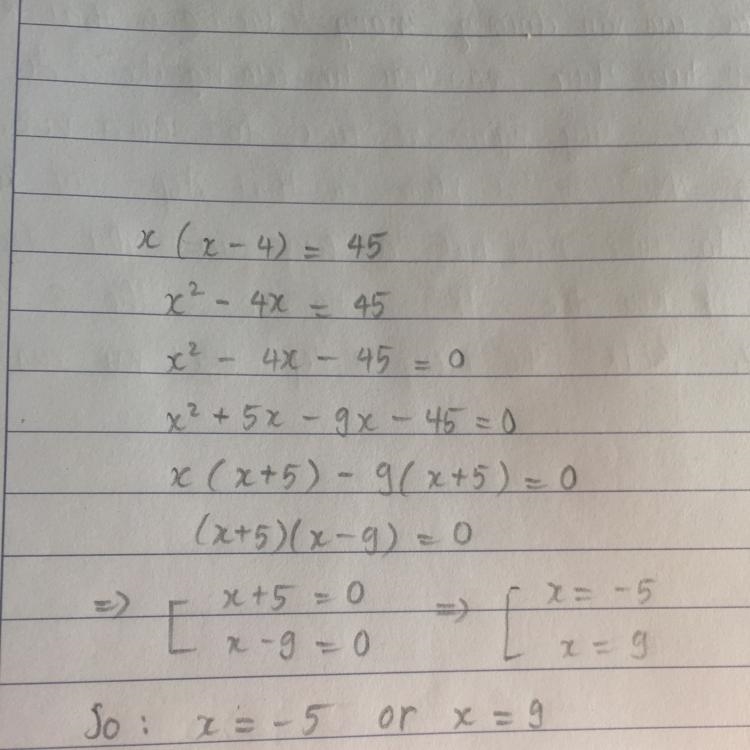 x (x - 4) = 45
x² - 4x = 45
x² - 4x - 45 = 0
x² + 5x - 9x - 45 = 0
x (x+5) - 9 (x+5) = 0
(x+5)(x-9) = 0
=> [ x+5 = 0 => [ x = -5
x - 9 = 0 x = 9
So : x = -5 or x = 9